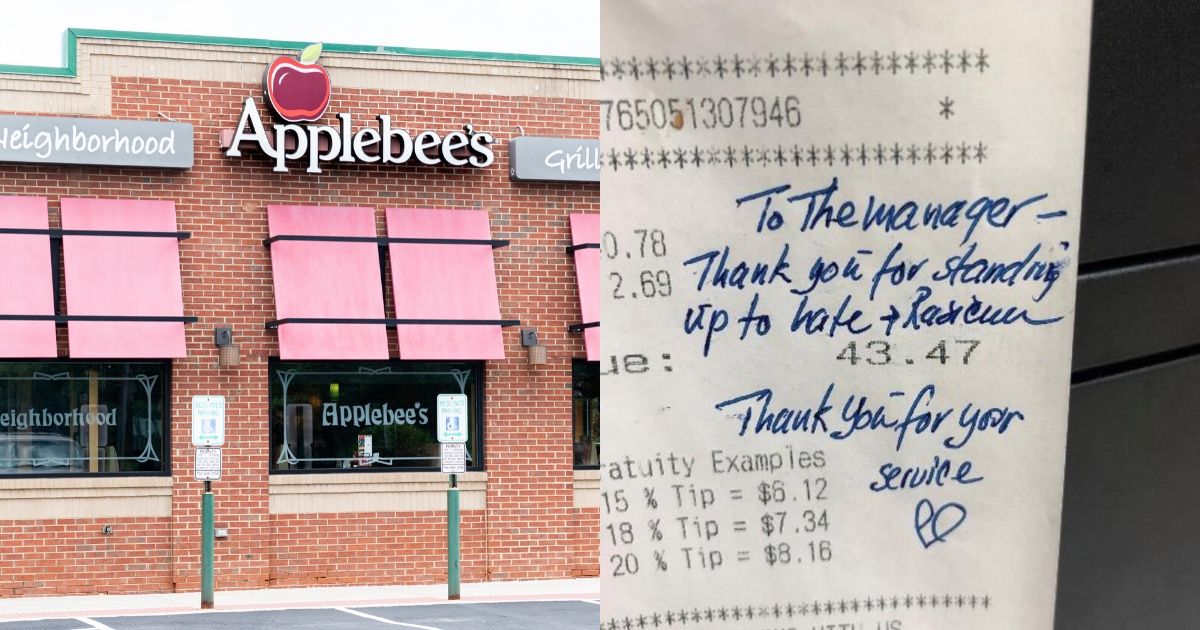 Neighborhood
Applebee's
Grill
eighborhood
Applebee's
RESERVED
PARKING
RESERVED
PARKING
********************
765051307946 *
********************
0.78
2.69
ue: 43.47
To The manager –
Thank you for standing
up to hate + Racism
Thank you for your
service
atuity Examples
15 % Tip = $6.12
18 % Tip = $7.34
20 % Tip = $8.16
********************
WITH US